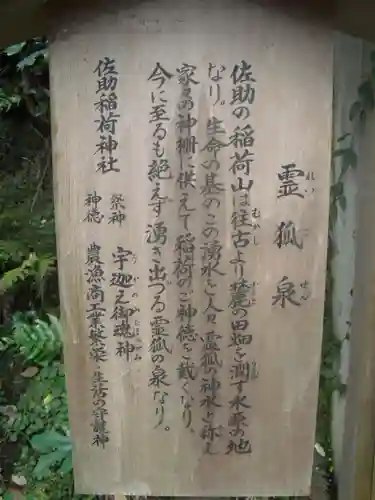 霊狐泉
れいこせん
佐助の稲荷山は往古より麓の田畑を潤す水家の地
むかし
なり。生命の基のこの湧水を人々霊狐の神水と称え
家々の神棚に供えて稲荷のご神徳を戴くなり、
今に至るも絶えず湧き出づる霊狐の泉なり。
佐助稲荷神社
祭神 宇迦之御魂神
うかのみたまのかみ
神徳 農漁商工業繁栄・生活の守護神